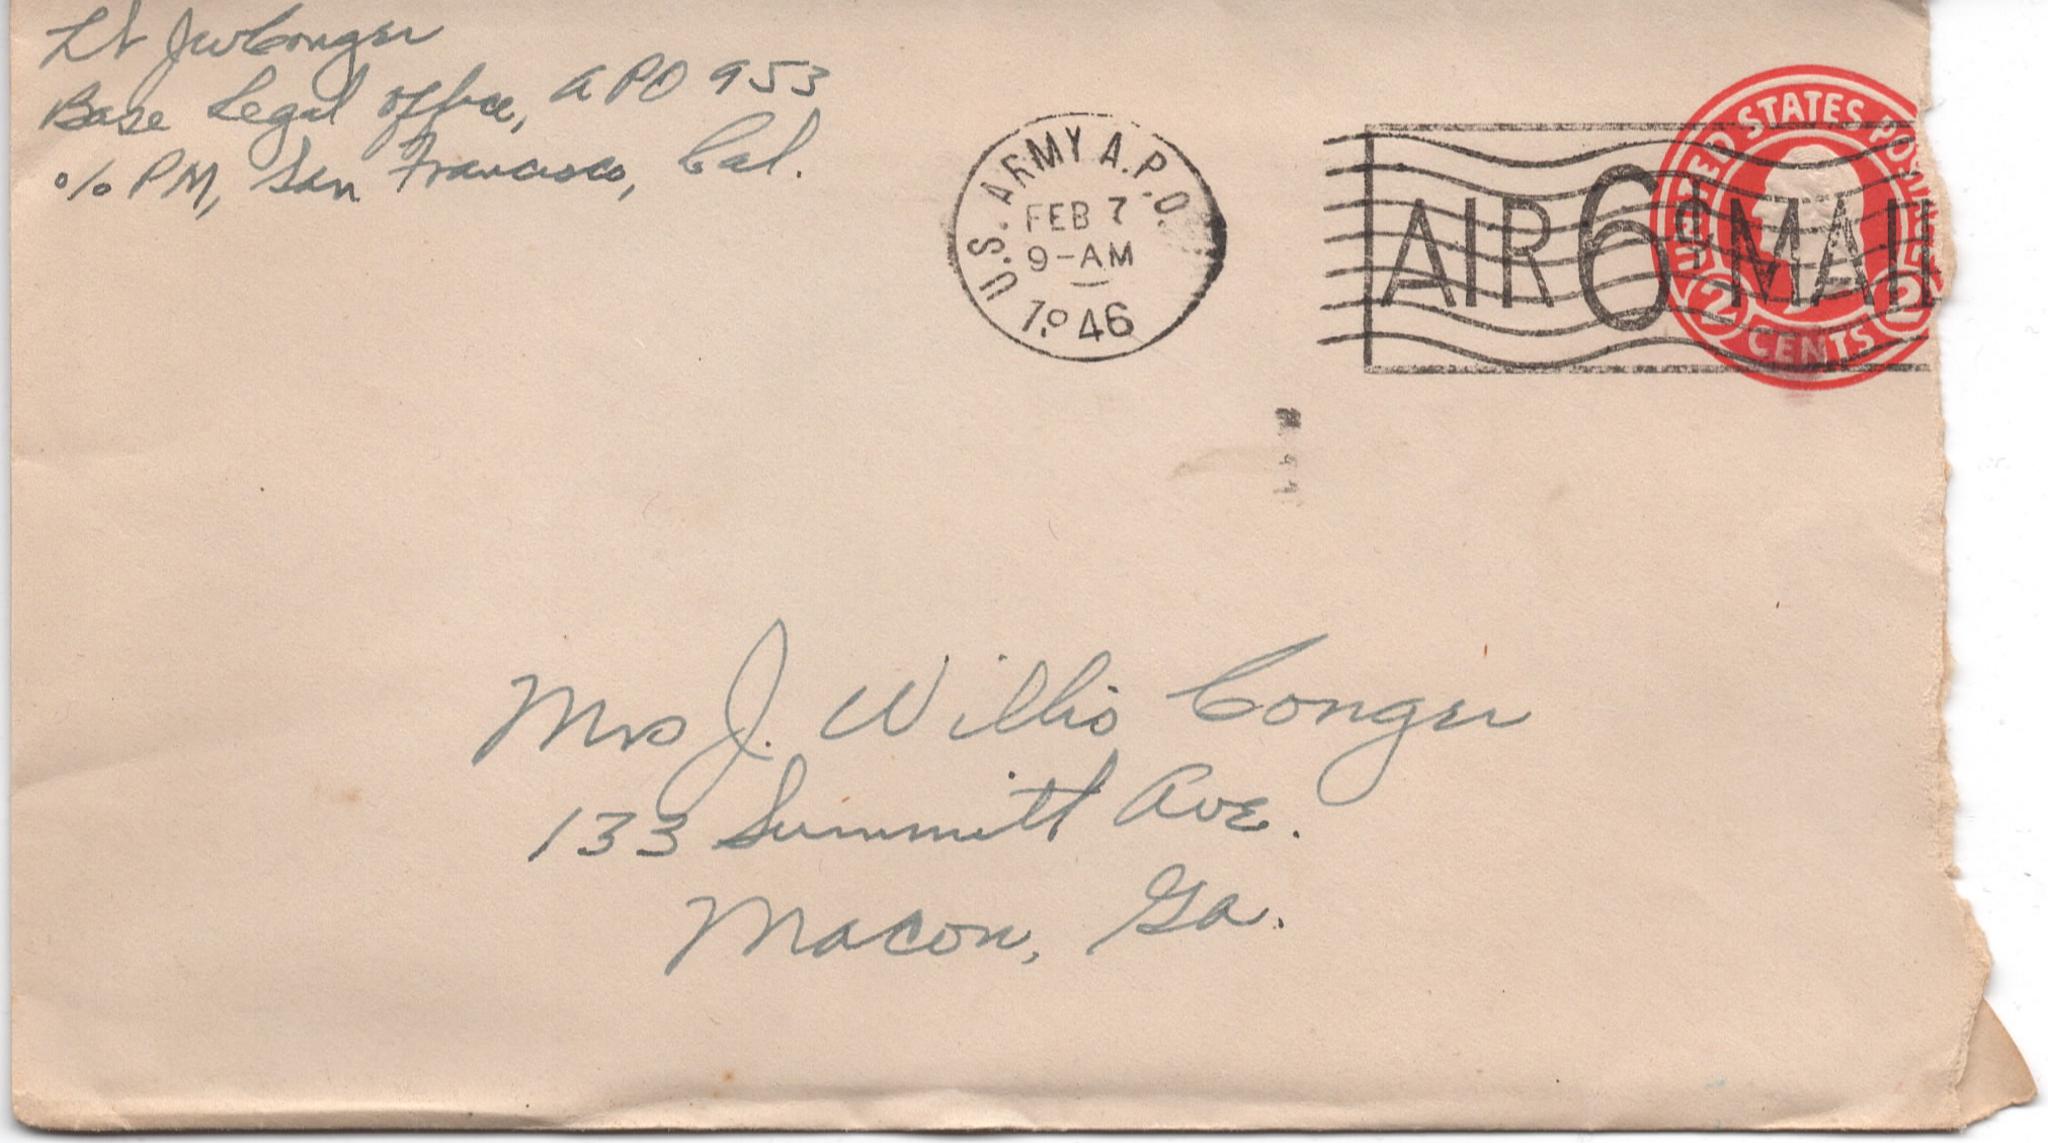 Lt JW Conger
Base Legal Office, APO 953
c/o PM, San Francisco, Cal.
U.S. ARMY A.P.O.
FEB 7
9-AM
1946
AIR 6¢ MAIL
UNITED STATES POSTAGE
2 CENTS 2
Mrs J. Willis Conger
133 Summitt Ave.
Macon, Ga.